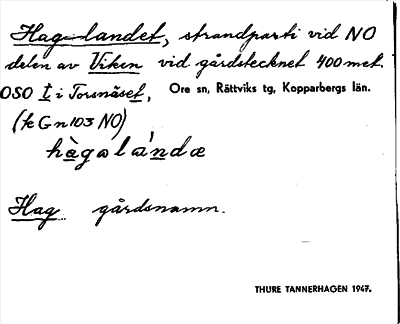 Hag-landet, strandparti vid NO
delen av Viken vid gårdstecknet 400 met.
OSO t i Torsnäset, Ore sn, Rättviks tg, Kopparbergs län.
(k Gn 103 NO)
hàgalándæ
Hag gårdsnamn.
THURE TANNERHAGEN 1947.